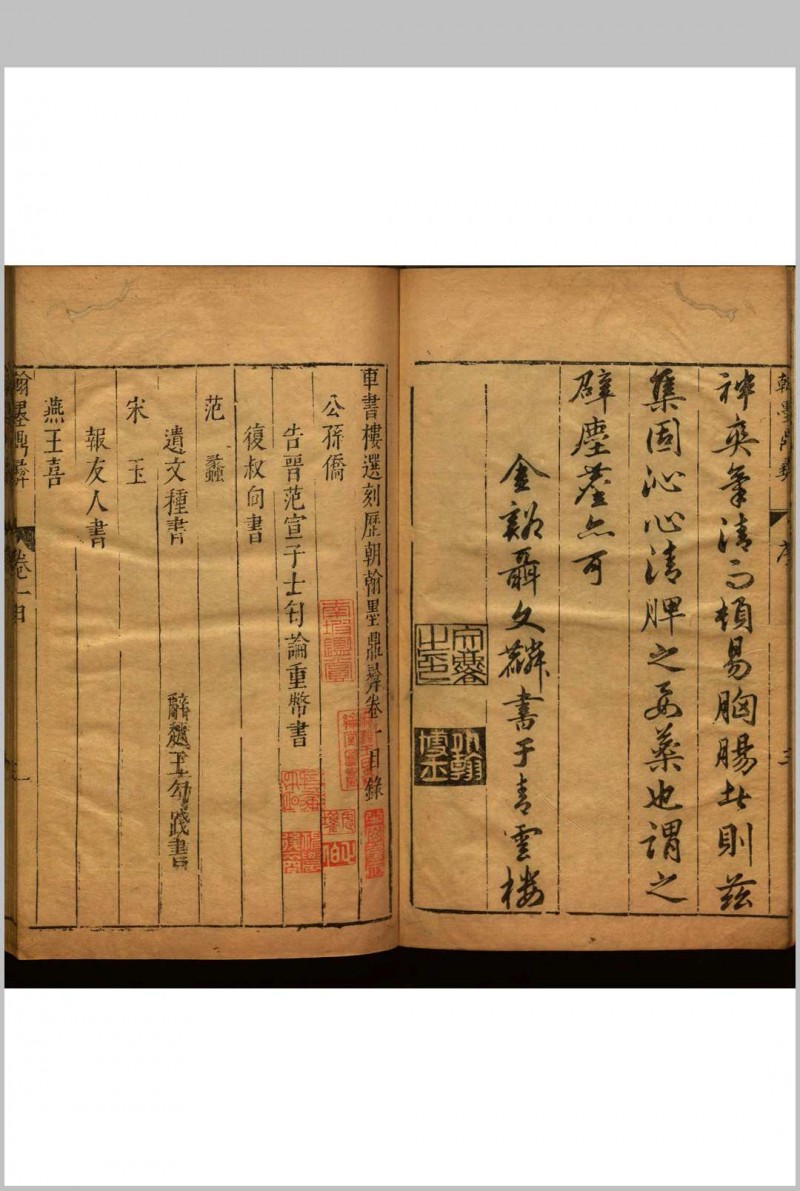 神爽氣清而頓易胸腸此則茲
集固沁心清脾之要藥也謂之
辟塵荃亦可
金谿聶文麟書于青雲樓
車書樓選刻歷朝翰墨鼎彝卷一目錄
公孫僑
告晉范宣子士匄論重幣書
復叔向書
范蠡
遺文種書
辭越王勾踐書
宋玉
報友人書
燕王喜
翰墨鼎彝 卷一目 一